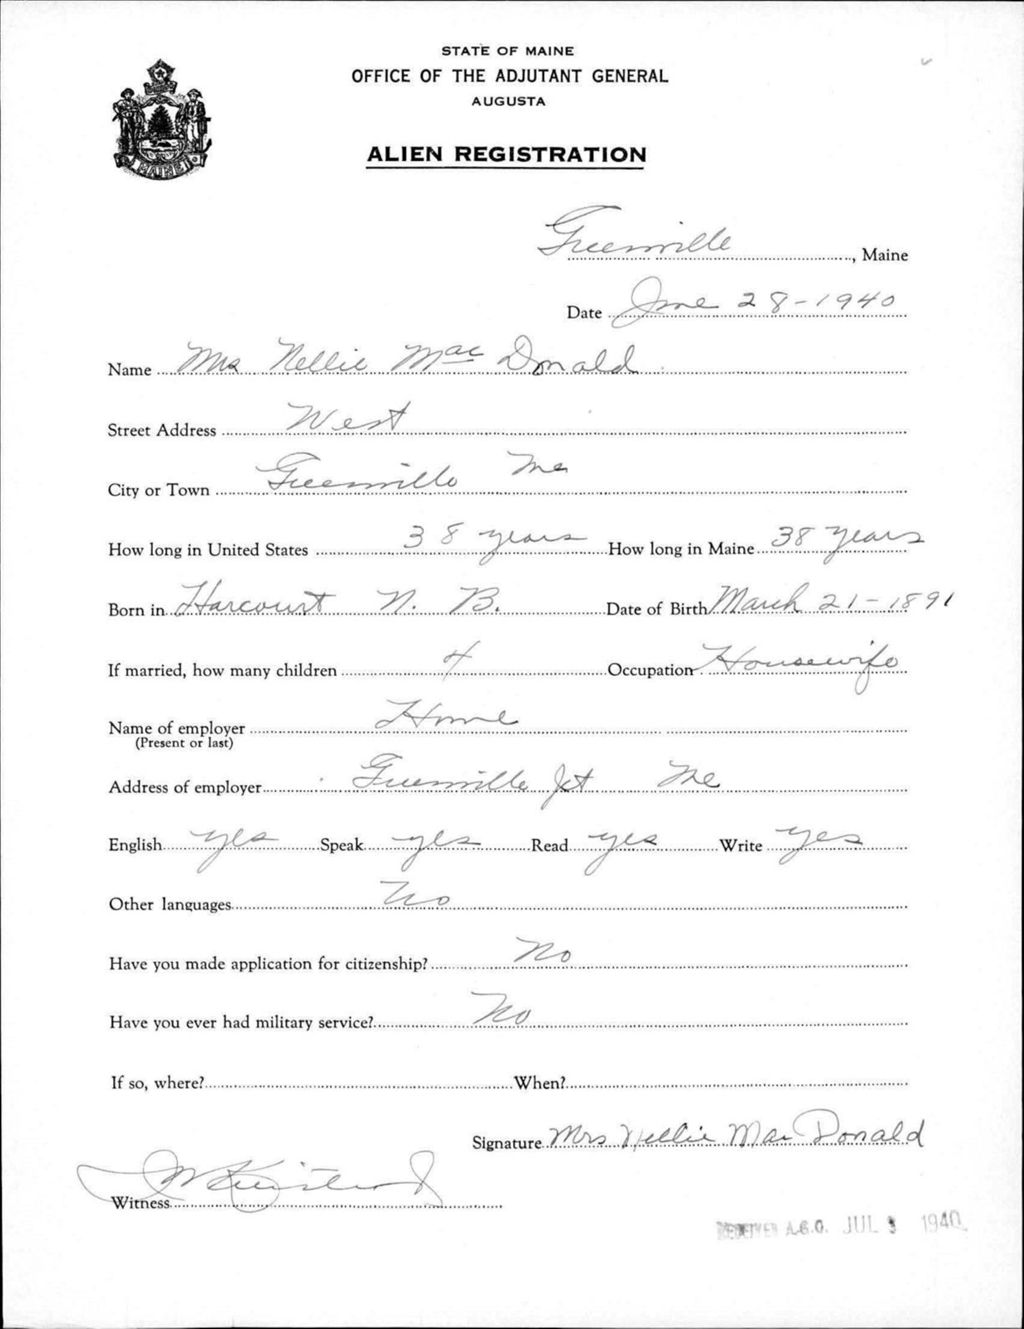 STATE OF MAINE
OFFICE OF THE ADJUTANT GENERAL
AUGUSTA
ALIEN REGISTRATION
MAINE
Greenville, Maine
Date June 28-1940
Name Mrs Nellie MacDonald
Street Address West
City or Town Greenville Me
How long in United States 38 years How long in Maine 38 years
Born in Harcourt N. B. Date of Birth March 21-1891
If married, how many children 4 Occupation Housewife
Name of employer Home
(Present or last)
Address of employer Greenville Jct Me
English yes Speak yes Read yes Write yes
Other languages No
Have you made application for citizenship? No
Have you ever had military service? No
If so, where? When?
Signature Mrs Nellie MacDonald
Witness
RECEIVED A.G.O. JUL 3 1940